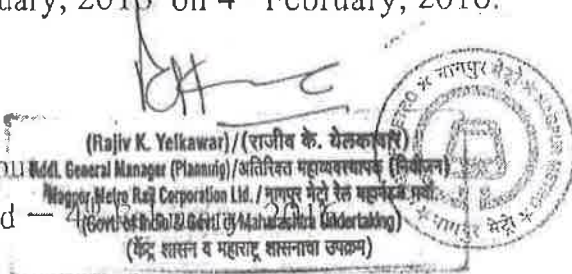 uary, 2016 on 4th February, 2016.
(Rajiv K. Yelkawar)/(राजीव के. येलकावार)
Addl. General Manager (Planning)/अतिरिक्त महाव्यवस्थापक (नियोजन)
Nagpur Metro Rail Corporation Ltd. / नागपूर मेट्रो रेल
(Govt. of India & Govt. of Maharashtra Undertaking)
(केंद्र शासन व महाराष्ट्र शासनाचा उपक्रम)
नागपुर मेट्रो
METRO